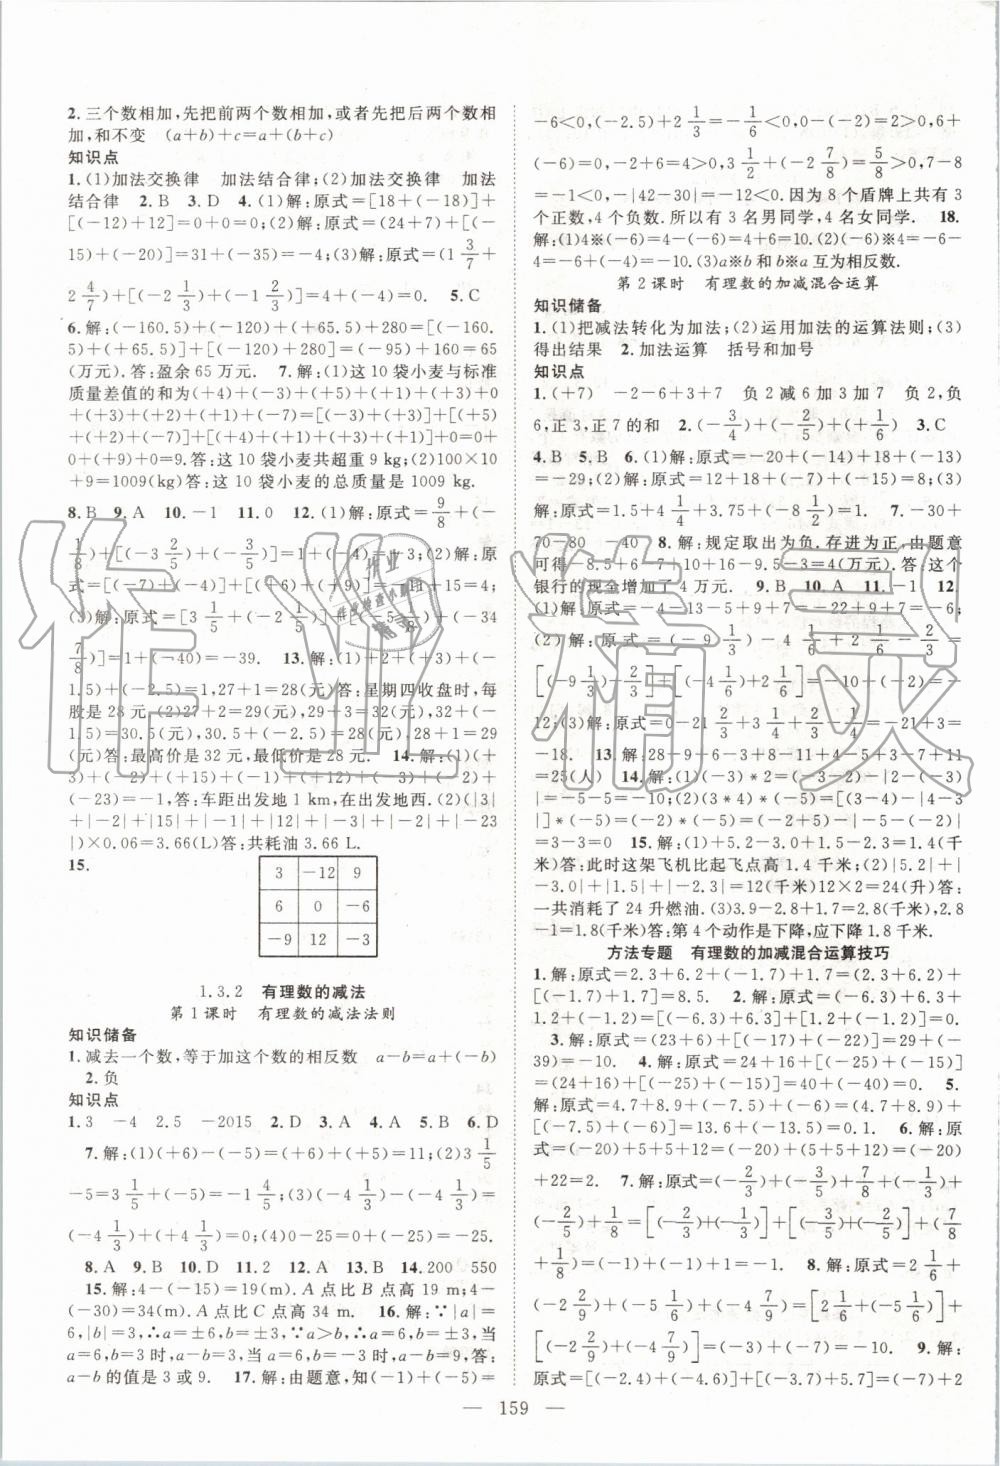 2. 三个数相加,先把前两个数相加,或者先把后两个数相
加,和不变 (a+b)+c=a+(b+c)
知识点
1. (1)加法交换律 加法结合律;(2)加法交换律 加法
结合律 2. B 3. D 4. (1)解:原式=[18+(-18)]+
[(-12)+12]=0+0=0;(2)解:原式=(24+7)+[(-
15)+(-20)]=31+(-35)=-4;(3)解:原式=(1 3/7+
2 4/7)+[(-2 1/3)+(-1 2/3)]=4+(-4)=0. 5. C
6. 解:(-160.5)+(-120)+(+65.5)+280=[(-160.5)
+(+65.5)]+[(-120)+280]=(-95)+160=65
(万元).答:盈余65万元. 7. 解:(1)这10袋小麦与标准
质量差值的和为(+4)+(-3)+(+5)+(+1)+(+3)+0
+(+3)+(+2)+0+(-6)=[(-3)+(+3)]+[(+5)
+(+2)+(+4)+(+3)+(+1)+(-6)]+0+0=0+
0+(+9)=9.答:这10袋小麦共超重9 kg;(2)100×10
+9=1009(kg)答:这10袋小麦的总质量是1009 kg.
8. B 9. A 10. -1 11. 0 12. (1)解:原式=[9/8+(-
1/8)+[(-3 2/5)+(-3/5)]=1+(-4)=-3;(2)解:原
式=[(-7)+(-4)]+[(-9)+(+9)]=-11+0=-11;
(3)解:原式=[3 1/5+(-2 1/5)]+[(-5 1/8)+(-34
7/8)]=1+(-40)=-39. 13. 解:(1)27+(+4)+(-
1.5)+(-2.5)=1+27+1=28(元)答:星期四收盘时,每
股是28元.(2)27+(+4)=31(元),31+(+1)=32(元),32+(
-1.5)=30.5(元),30.5+(-2.5)=28(元),28+1=
29(元).答:最高价是32元,最低价是28元. 14. 解:(1)
(+3)+(-2)+15+(-1)+(+12)+(-3)+(-2)+
(-23)=-1,答:车距出发地1 km,在出发地西.(2)(|3|
+|-2|+|15|+|-1|+|12|+|-3|+|-2|+|-23
|)×0.06=3.66(L)答:共耗油3.66 L.
15.
3 -12 9
6 0 -6
-9 12 -3
1.3.2 有理数的减法
第1课时 有理数的减法法则
知识储备
1. 减去一个数,等于加这个数的相反数 a-b=a+(-b)
2. 负
知识点
1. 3 -4 2.5 -2015 2. D 3. A 4. A 5. B 6. D
7. 解:(1)(+6)-(-5)=(+6)+(+5)=11;(2)3 1/5
-5=3 1/5+(-5)=-1 4/5;(3)(-4 1/3)-(-4 1/3)=
(-4 1/3)+(+4 1/3)=0;(4)0-25=0+(-25)=-25.
8. A 9. B 10. D 11. 2 12. A 13. B 14. 200 550
15. 解:4-(-15)=19(m). A点比B点高19 m;4-
(-30)=34(m). A点比C点高34 m. 16. 解:∵|a|=
6,|b|=3,∴a=±6,b=±3,∵a>b,∴a=6,b=±3,当
a=6,b=3时,a-b=3,当a=6,b=-3时,a-b=9,答:
a-b的值是3或9. 17. 解:由题意,知(-1)+(-5)=
-6<0,(-2.5)+2 1/3=-1/6<0,0-(-2)=2>0,6+
(-6)=0,-2-(-6)=4>0,3 1/2+(-2 7/8)=5/8>0,7-8
=-1<0,-|42-30|=-12<0.因为8个盾牌上共有3
个正数,4个负数.所以有3名男同学,4名女同学. 18.
解:(1)4※(-6)=4-(-6)=4+6=10.(2)(-6)※4=
-6-4=-10.(3)a※b和b※a互为相反数.
第2课时 有理数的加减混合运算
知识储备
1. (1)把减法转化为加法;(2)运用加法的运算法则;(3)
得出结果 2. 加法运算 括号和加号
知识点
1. (+7) -2-6+3+7 负2减6加3加7 负2,负
6,正3,正7的和 2. (-3/4)+(-2/5)+(+1/6) 3. C
4. B 5. B 6. (1)解:原式=-20+(-14)+18+(-13)
=-29;(2)解:原式=4.7+3.4+(-8.5)+(-1.5)=8;(3)
解:原式=1.5+4 1/4+3.75+(-8 1/2)=1. 7. -30+
70-80 -40 8. 解:规定取出为负,存进为正,由题意
可得-8.5+6-7+12-5+9.5-3=4(万元).答:这个
银行的现金增加了4万元. 9. B 10. A 11. -1 12.
(1)解:原式=-4-13-5+9+7=-22+9+7=-6;
(2)解:原式=(-9 1/3)-2/3+7 1/6-2 1/6-2/3=
[(-9 1/3)-2/3]+[(-7 1/6)+2 1/6]=-10+(-2)=-
12;(3)解:原式=0-21+3 3/4-2/3-3/4+2/3=-21+3=
-18. 13. 解:28-9+6-3+8-11+4-5+7-2+1+1
=25(人) 14. 解:(1)(-3)*2=(-3-2)-|2-(-3)|
=-5-5=-10;(2)[(-3)*2]*(-5)=[(-3-2)-|2-(-3)
|]*(-5)=(-10)*(-5)=(-10+5)-|-5-(-10)|=
-5-5=-10. 15. 解:(1)+5.2-3.0+1.5-2.3=1.4(千
米)答:此时这架飞机比起飞点高1.4千米;(2)|5.2|+|
-3.0|+|1.5|+|-2.3|=12(千米)12×2=24(升)答:
一共消耗了24升燃油.(3)3.9-2.8+1.7=2.8(千米),2.8
-1=1.8(千米)答:第4个动作是下降,应下降1.8千米.
方法专题 有理数的加减混合运算技巧
1. 解:原式=2.3+6.2+(-1.7)+1.7=(2.3+6.2)+
[(-1.7)+1.7]=8.5. 2. 解:原式=(-6.3)+(-1.2)
+6.3+1.2=[(-6.3)+6.3]+[1.2+(-1.2)]=0.
3. 解:原式=(23+6)+[(-17)+(-22)]=29+(-
39)=-10. 4. 解:原式=(24+16)+[(-25)+(-15)]
=(24+16)+[(-25)+(-15)]=40+(-40)=0. 5.
解:原式=4.7+8.9+(-7.5)+(-6)=(4.7+8.9)+
[(-7.5)+(-6)]=13.6+(-13.5)=0.1. 6. 解:原
式=(-20)+5+5+12=(-20)+(5+5+12)=(-20)
+22=2. 7. 解:原式=(-2/3)+(-3/5)+7/8+(-1/3)+
(-2/5)+1/8=[(-2/3)+(-1/3)]+[(-3/5)+(-2/5)]+(7/8
+1/8)=(-1)+(-1)+1=-1. 8. 解:原式=2 1/6+
(-2 2/9)+(+5 1/6)+(-4 7/9)=[2 1/6+(-5 1/6)]+
[(-2 2/9)+(-4 7/9)]=-3+(-7)=-10. 9. 解:
原式=[(-2.4)+(-4.6)]+[(-3.7)+5.7]=(-7)+2
— 159 —